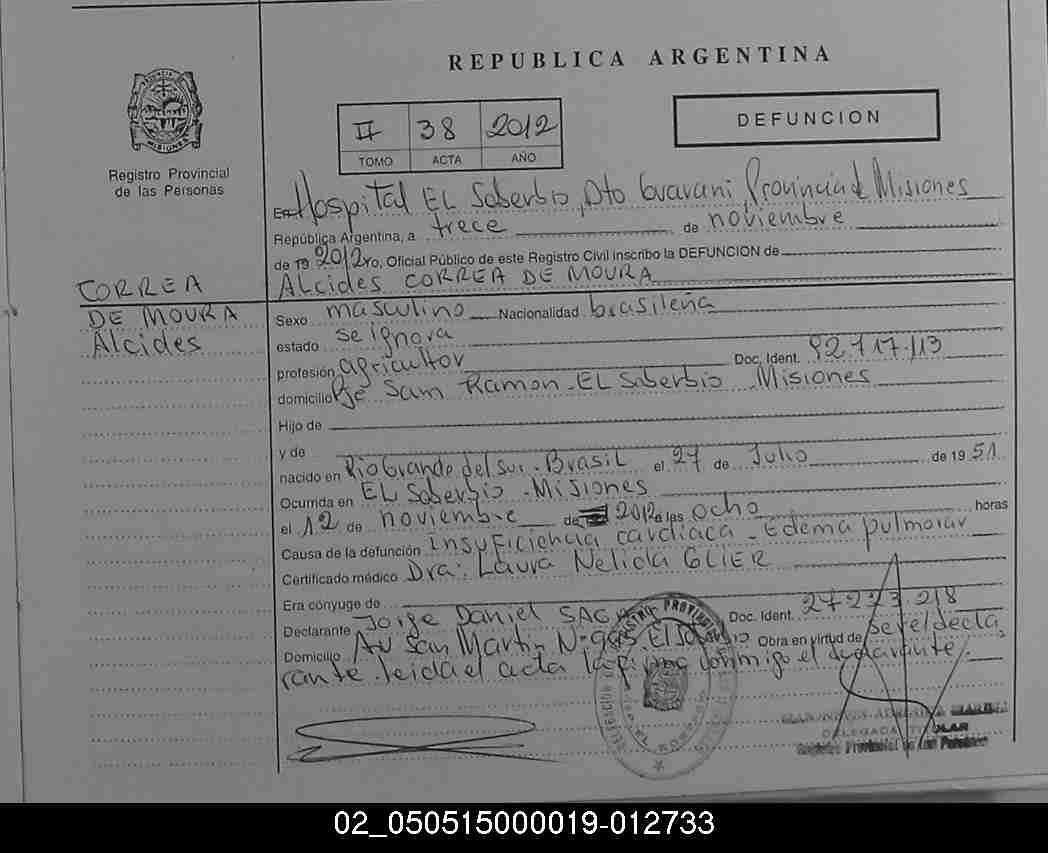 REPUBLICA ARGENTINA
II 38 2012
TOMO ACTA AÑO
DEFUNCION
Registro Provincial
de las Personas
CORREA
DE MOURA
Alcides
En Hospital EL Soberbio, Dto Guarani, Provincia de Misiones
República Argentina, a trece de noviembre
de 19 2012 Yo, Oficial Público de este Registro Civil inscribo la DEFUNCION de
Alcides CORREA DE MOURA
Sexo masculino Nacionalidad brasileña
estado se ignora
profesión agricultor Doc. Ident. 92.717.113
domicilio Pje San Ramon - EL Soberbio Misiones
Hijo de
y de
nacido en Rio Grande del sur - Brasil el 27 de Julio de 1951
Ocurrida en EL Soberbio - Misiones
el 12 de noviembre de 2012 a las ocho horas
Causa de la defunción insuficiencia cardiaca - Edema pulmonar
Certificado médico Dra: Laura Nelida GLIER
Era cónyuge de
Declarante Jorge Daniel Doc. Ident. 27223.218
Domicilio Av San Martin N° El Soberbio Obra en virtud de ser el decla
rante. leida el acta la firma conmigo el declarante.
DELEGADA TITULAR
Registro Provincial de las Personas
02_050515000019-012733